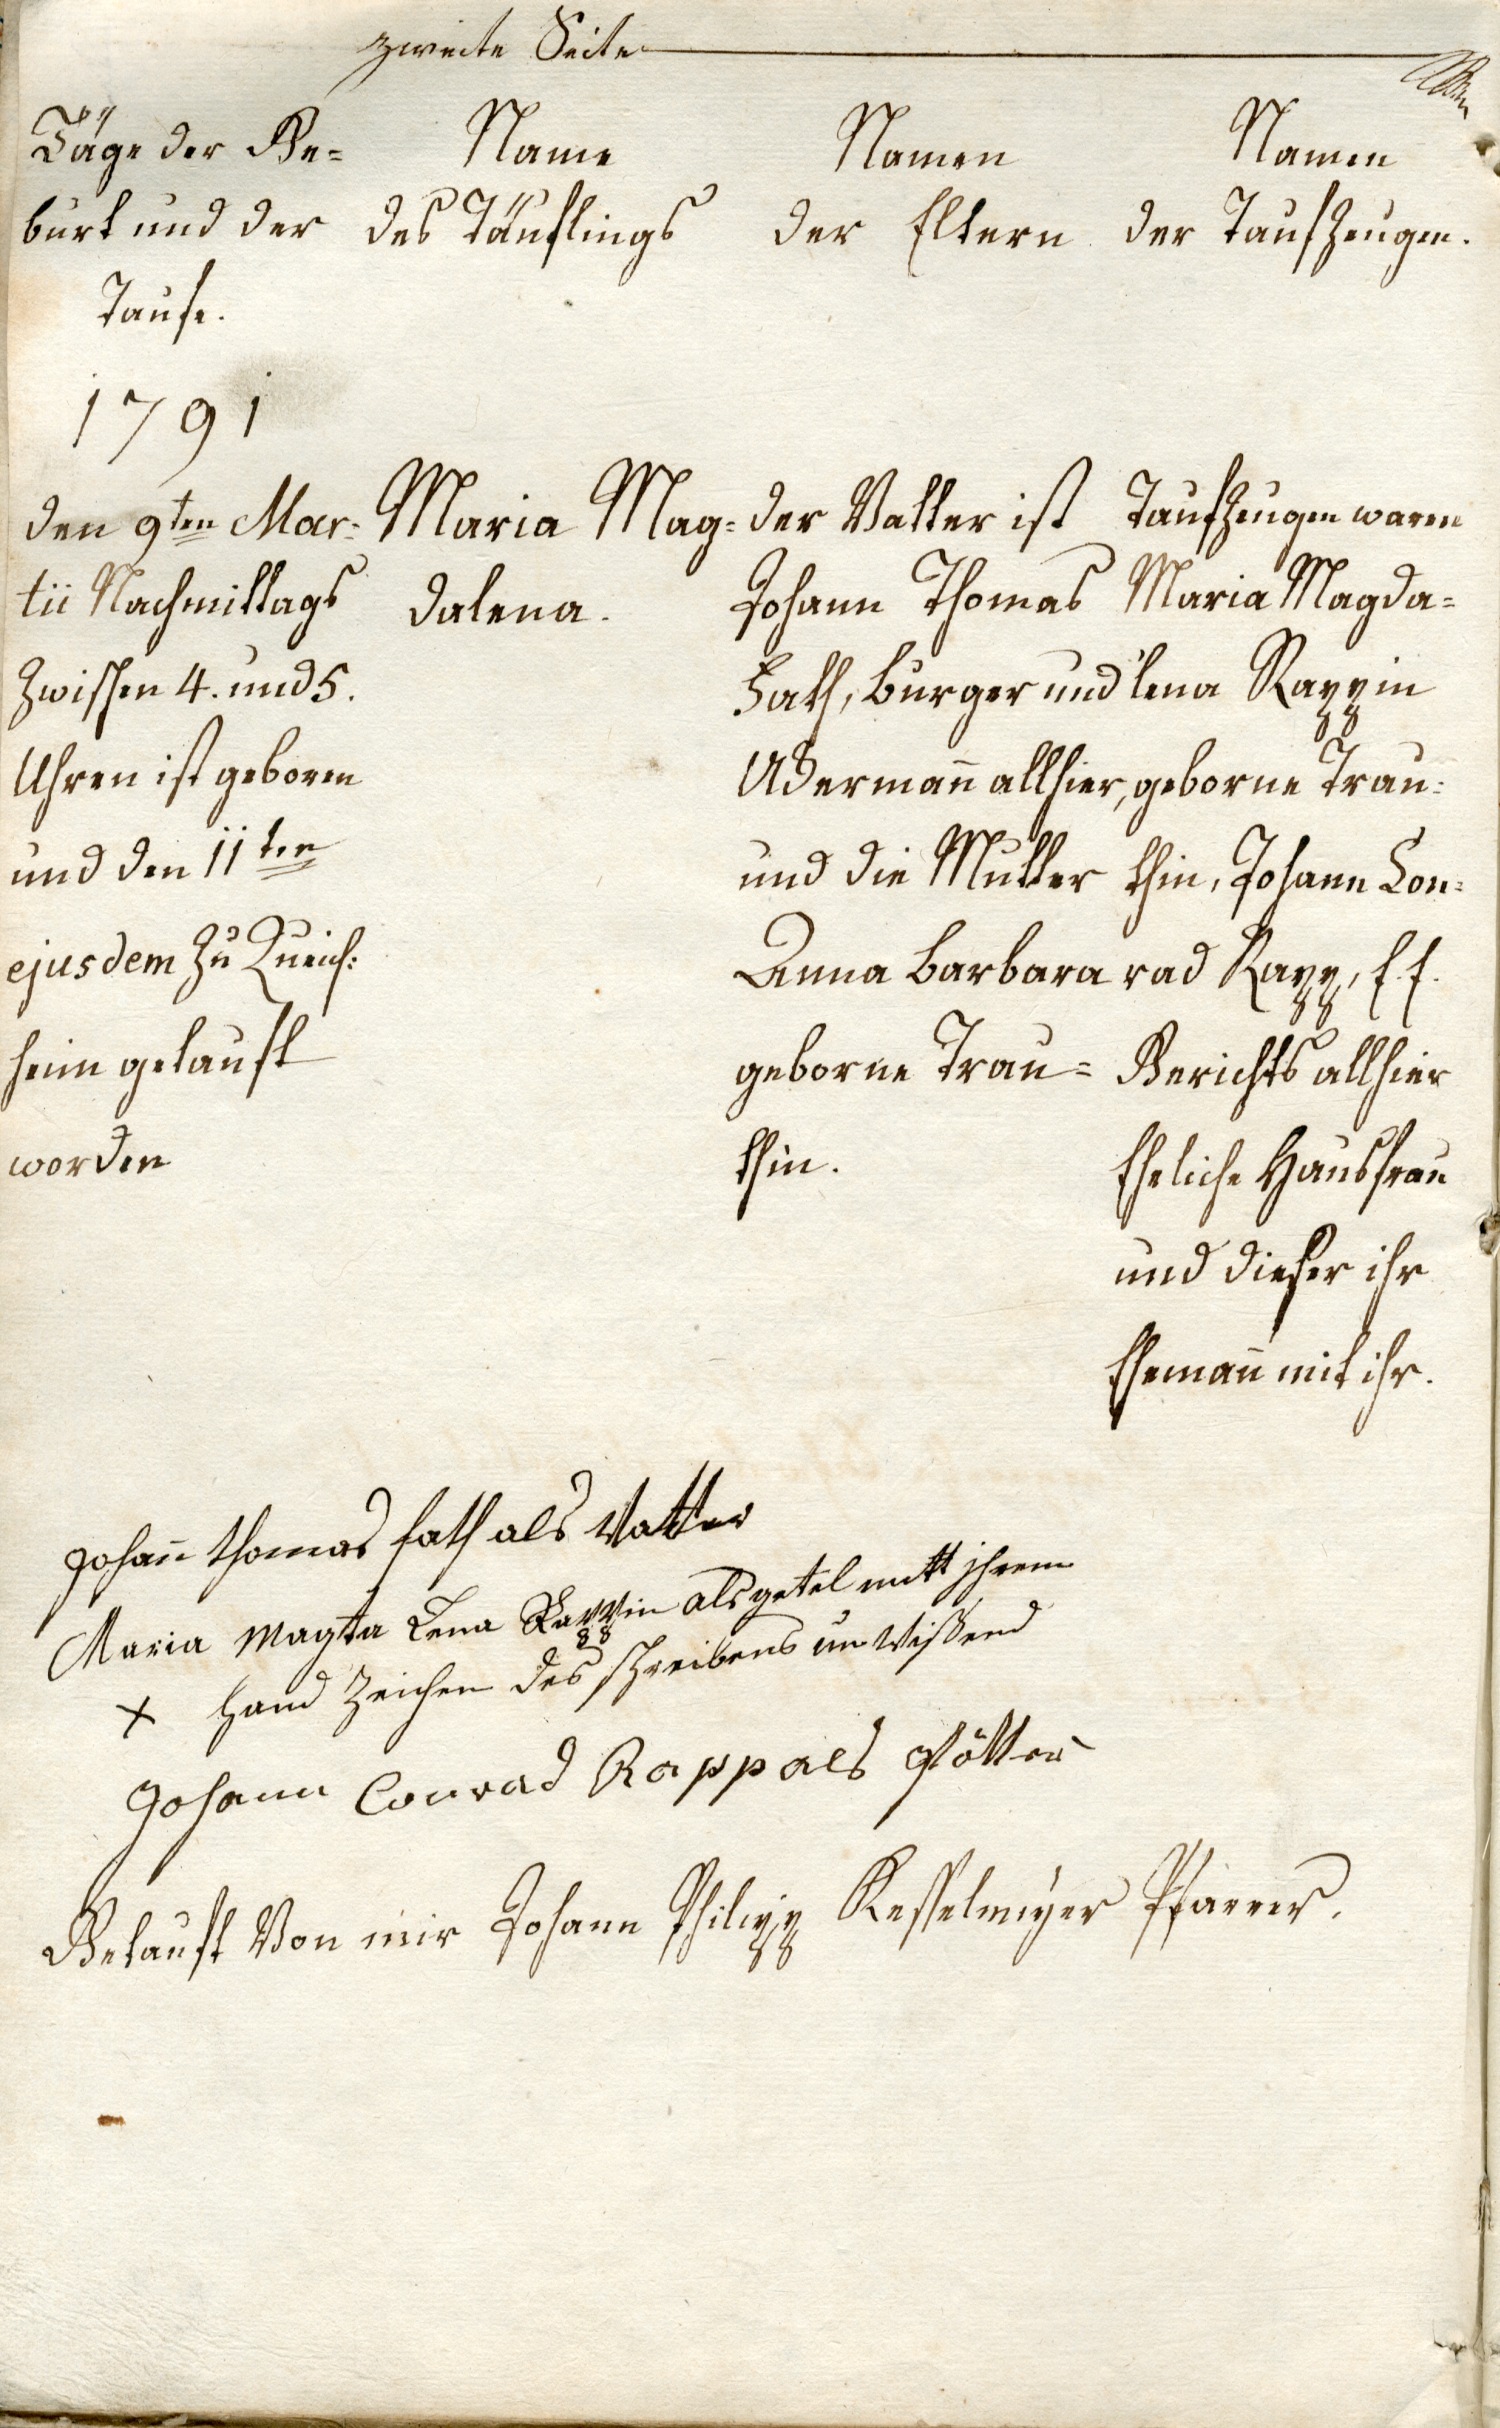 zweite Seite
Täge der Ge=
burt und der
Taufe.
Name
des Täuflings
Namen
der Eltern
Namen
der Taufzeugen.
1791
den 9ten Mar=
tii Nachmittags
zwischen 4. und 5.
Uhren ist geboren
und den 11ten
ejusdem zu Queich=
heim getauft
worden
Maria Mag=
dalena.
der Vatter ist
Johann Thomas
Fath, burger und
Ackermañ allhier,
und die Mutter
Anna barbara
geborne Trau=
thin.
Taufzeugen waren
Maria Magda=
lena Rappin
geborne Trau=
thin, Johann Con=
rad Rapp, E. E.
Gerichts allhier
Eheliche Hausfrau
und dieser ihr
Ehemañ mit ihr.
Johañ thomas fath als Vatter
Maria Magta Lena Rappin als getel mitt ihrem
x hand Zeichen des schreibens un Wißend
Johann Conrad Rapp als Pötter
Getauft Von mir Johann Philipp Kesselmeyer Pfarrer.